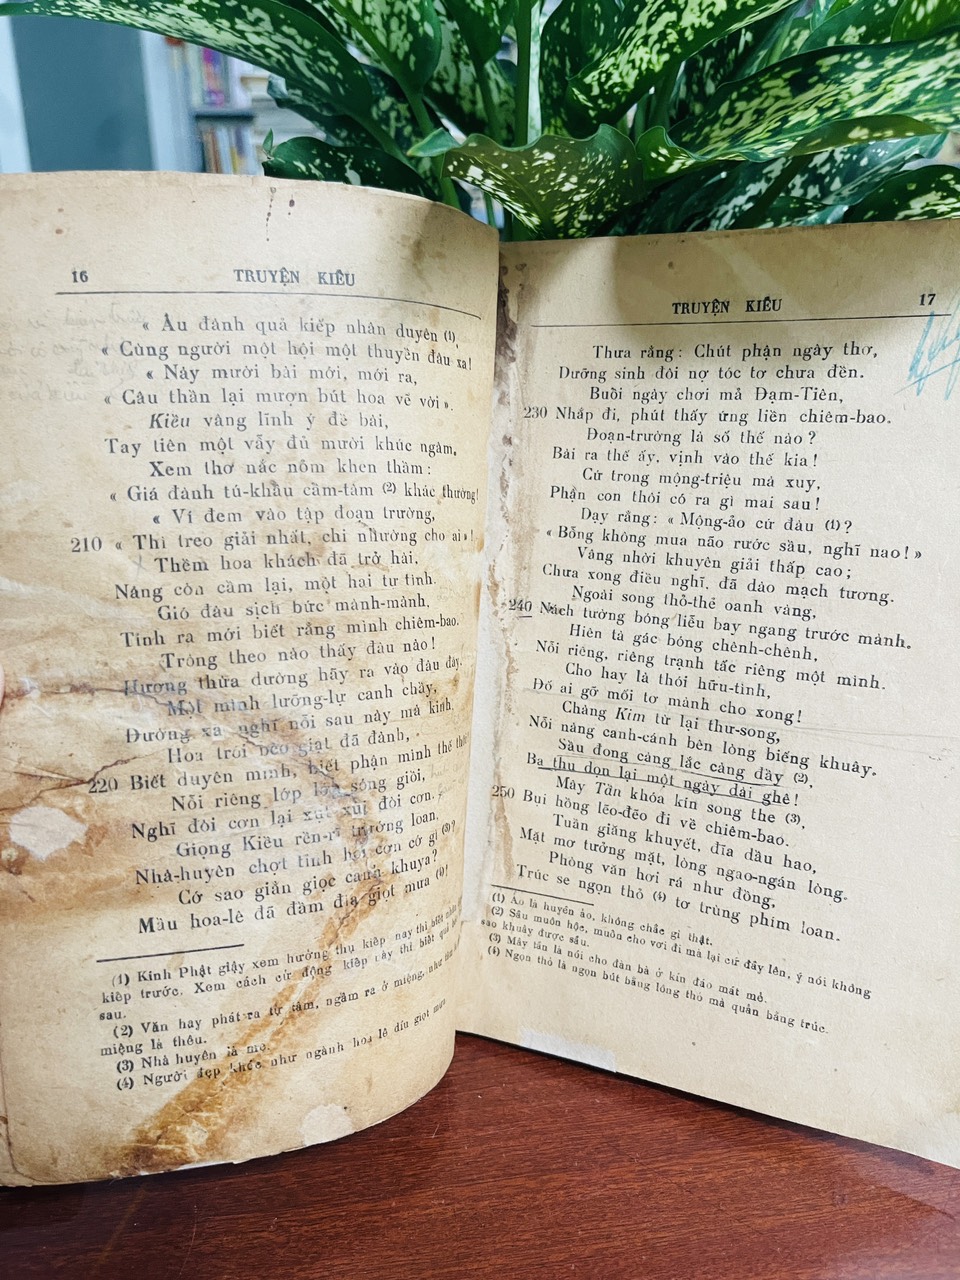 16
TRUYỆN KIỀU
« Âu đành quả kiếp nhân duyên (1),
« Cùng người một hội một thuyền đâu xa!
« Này mười bài mới, mới ra,
« Câu thần lại mượn bút hoa vẽ vời ».
Kiều vâng lĩnh ý đề bài,
Tay tiên một vẫy đủ mười khúc ngâm,
Xem thơ nắc nỏm khen thầm:
« Giá đành tú-khẩu cẩm-tâm (2) khác thường!
« Ví đem vào tập đoạn trường,
210 « Thì treo giải nhất, chi nhường cho ai »!
Thềm hoa khách đã trở hài,
Nàng còn cầm lại, một hai tự tình.
Gió đâu sịch bức mành-mành,
Tỉnh ra mới biết rằng mình chiêm-bao.
Trông theo nào thấy đâu nào!
Hương thừa dường hãy ra vào đâu đây.
Một mình lưỡng-lự canh chầy,
Đường xa nghĩ nỗi sau này mà kinh.
Hoa trôi bèo giạt đã đành,
220 Biết duyên mình, biết phận mình thế thôi!
Nỗi riêng lớp lớp sóng giồi,
Nghĩ đòi cơn lại xụt xùi đòi cơn.
Giọng Kiều rền-rĩ trướng loan,
Nhà-huyên chợt tỉnh hỏi cơn cớ gì (3)?
Cớ sao giằn giọc canh khuya?
Mầu hoa-lê đã đầm đìa giọt mưa (4)!
(1) Kinh Phật giậy xem hưởng thụ kiếp này thì biết nhân
kiếp trước. Xem cách cử động kiếp này thì biết quả
sau.
(2) Văn hay phát ra tự tâm, ngâm ra ở miệng, như
miệng là thêu.
(3) Nhà huyên là mẹ.
(4) Người đẹp khóc như ngành hoa lê díu giọt mưa
TRUYỆN KIỀU
17
Thưa rằng: Chút phận ngày thơ,
Dưỡng sinh đôi nợ tóc tơ chưa đền.
Buổi ngày chơi mả Đạm-Tiên,
230 Nhắp đi, phút thấy ứng liền chiêm-bao.
Đoạn-trường là số thế nào?
Bài ra thế ấy, vịnh vào thế kia!
Cứ trong mộng-triệu mà xuy,
Phận con thôi có ra gì mai sau!
Dạy rằng: « Mộng-ảo cứ đâu (1)?
« Bỗng không mua não rước sầu, nghĩ nao! »
Vâng nhời khuyên giải thấp cao;
Chưa xong điều nghĩ, đã dào mạch tương.
Ngoài song thỏ-thẻ oanh vàng,
240 Nách tường bóng liễu bay ngang trước mành.
Hiên tà gác bóng chênh-chênh,
Nỗi riêng, riêng trạnh tấc riêng một mình.
Cho hay là thói hữu-tình,
Đố ai gỡ mối tơ mành cho xong!
Chàng Kim từ lại thư-song,
Nỗi nàng canh-cánh bên lòng biếng khuây.
Sầu đong càng lắc càng đầy (2),
Ba thu dọn lại một ngày dài ghê!
Mây Tần khóa kín song the (3),
250 Bụi hồng lẽo-đẽo đi về chiêm-bao.
Tuần giăng khuyết, đĩa dầu hao,
Mặt mơ tưởng mặt, lòng ngao-ngán lòng.
Phòng văn hơi rá như đồng,
Trúc se ngọn thỏ (4) tơ trùng phím loan.
(1) Ảo là huyền ảo, không chắc gì thật.
(2) Sầu muôn hộc, muốn cho vơi đi mà lại cứ đầy lên, ý nói không
sao khuây được sầu.
(3) Mây tần là nói cho đàn bà ở kín đáo mát mẻ.
(4) Ngọn thỏ là ngọn bút bằng lông thỏ mà quản bằng trúc.